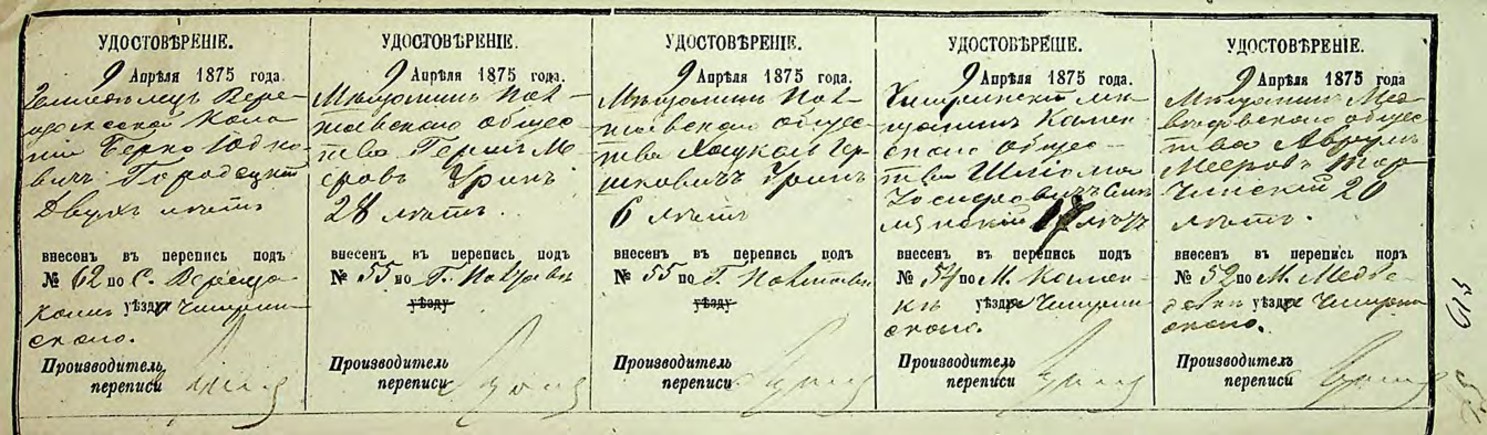 УДОСТОВѢРЕНІЕ.
9 Апрѣля 1875 года.
Земледѣлецъ Вере-
Коло-
ніи Берко Юдко-
вичъ Городецкій
Двухъ лѣтъ
внесенъ въ перепись подъ
№ 62 по С. Вереща-
камъ уѣзда Чигирин-
скаго.
Производитель
переписи
УДОСТОВѢРЕНІЕ.
9 Апрѣля 1875 года.
Мѣщанинъ
общес-
тва Герш Ме-
еровъ Уринъ
28 лѣтъ.
внесенъ въ перепись подъ
№ 55 по Г.
уѣзду
Производитель
переписи
УДОСТОВѢРЕНІЕ.
9 Апрѣля 1875 года.
Мѣщанинъ
общес-
тва Хацкель Гер-
шковичъ Уринъ
6 лѣтъ
внесенъ въ перепись подъ
№ 55 по Г.
уѣзду
Производитель
переписи
УДОСТОВѢРЕНІЕ.
9 Апрѣля 1875 года.
Чигиринскій мѣ-
щанинъ Камен-
скаго общес-
тва Шліома
Іосифовичъ
17 лѣтъ
внесенъ въ перепись подъ
№ 54 по М. Камен-
кѣ уѣзда Чигирин-
скаго.
Производитель
переписи
УДОСТОВѢРЕНІЕ.
9 Апрѣля 1875 года
Мѣщанинъ Мед-
вѣдовскаго общес-
тва Аврумъ
Мееровъ Тар-
20
лѣтъ.
внесенъ въ перепись подъ
№ 52 по М. Медвѣ-
довкѣ уѣзда Чигирин-
скаго.
Производитель
переписи
615